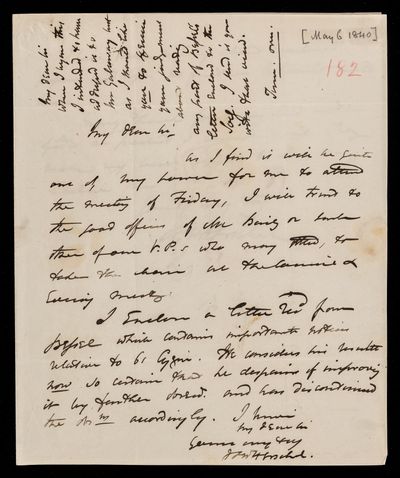 [May 6 1840]
182
My dear Sir
When I began this
I intended to have
addressed it to
Mr Galloway but
as I should like
your
your judgement
about reading
any part of Bessel's
letter Enclosed to the
Socy. I send it you
with that view.
My dear Sir
as I find it will be quite
out of my power for me to attend
the meeting of Friday, I will trust to
the good offices of Mr Baily or
other of our V.P.s who may attend, to
take the chair at the Council &
Evening meetg.
I Enclose a letter recd from
Bessel which contains important notices
relative to 61 Cygni. He considers his result
now so certain that he despairs of improving
it by further obsns. and has discontinued
the obsns accordingly. I remain
my dear Sir
yours very truly
J F W Herschel.